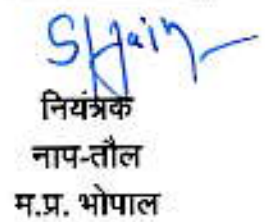 SJain
नियंत्रक
नाप-तौल
म.प्र. भोपाल